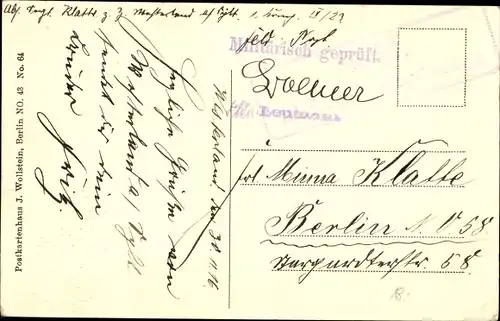 Abs. Sergt. Klatte z. Z. Westerland a/ Sylt
Militärisch geprüft.
Leutnant
Westerland den 30 11 16
Herzliche Grüße von
Westerland a/ Sylt
sendet dir dein
Bruder
Fritz.
Frl. Klatte
Berlin N. O. 58
Stargardterstr. 58.
Postkartenhaus J. Wollstein, Berlin NO. 43 No. 64